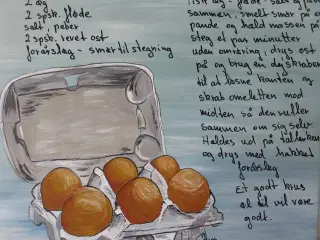 2 æg
2 spsk. fløde
salt, peber
2 spsk. revet ost
forårsløg - smør til stegning
sammen, smelt smør på en
pande og hæld massen på
steg et par minutter
uden omrøring, drys ost
på og brug en dejskraber
til at løsne kanten og
skrab omeletten mod
midten så den ruller
sammen om sig selv
Hældes ud på tallerken
og drys med hakket
forårsløg
Et godt krus
øl til vil være
godt.